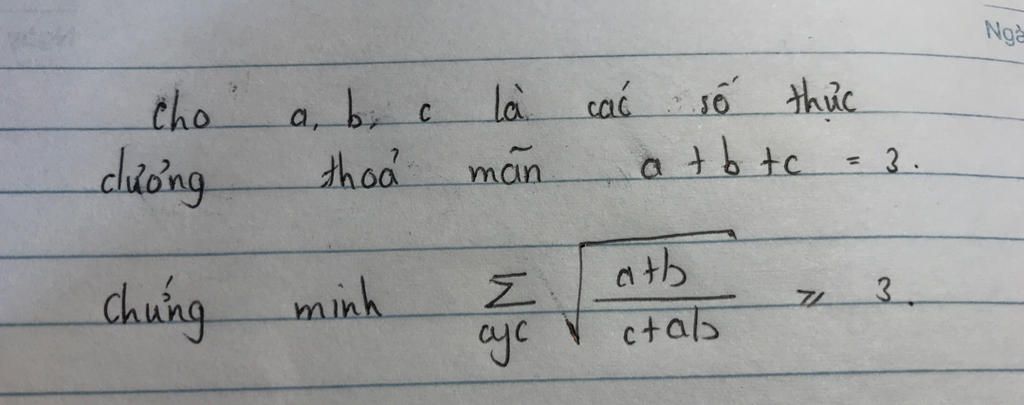 Ngà
Cho a, b, c là các số thực
dương thoả mãn a + b + c = 3.
Chứng minh ∑cyc √((a+b)/(c+ab)) ≥ 3.